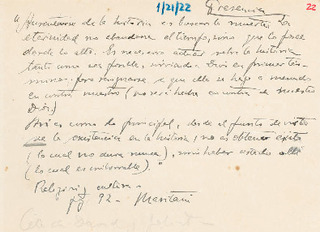 1/21/22 Presencia 22
"Ausentarse de la historia es buscar la muerte. La
eternidad no abandona el tiempo, sino que lo posee
desde lo alto. Es necesario actuar sobre la historia
tanto como sea posible, sirviendo a Dios en primer tér-
mino: pero resignarse a que ella se haga a menudo
en contra nuestro (no será hecha en contra de nuestro
Dios)
Mas como lo principal, desde el punto de vista
de la existencia en la historia, no es obtener éxito
(lo cual no dura nunca), sino haber estado allí
(lo cual es imborrable)."
Religión y cultura -
pg 92 - Maritain